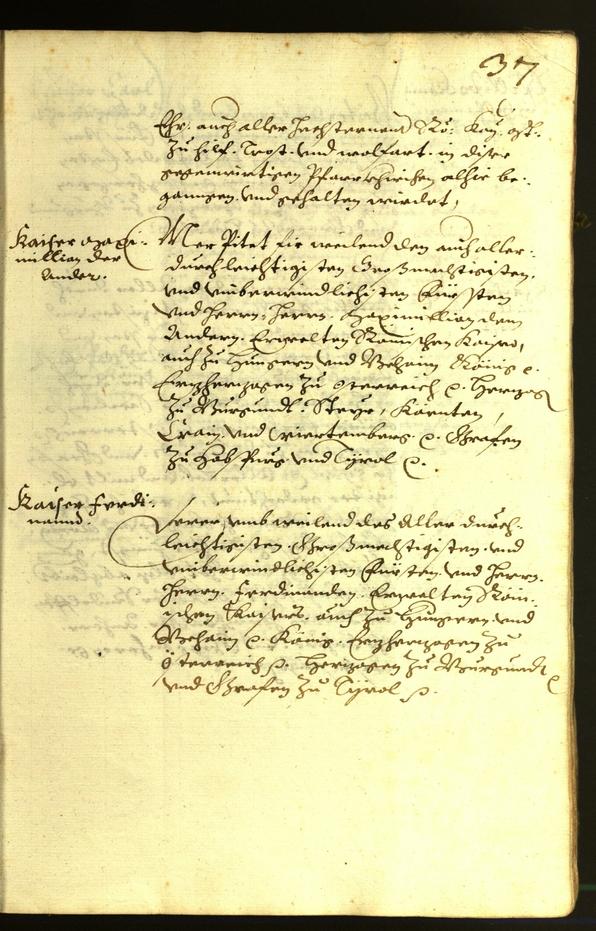 37
Ehr. auch aller hechsternend Rö: Kay: Mt.
zu hilf. Trost. vnd wolfart. in diser
gegenwirtigen Pfarrkhirchen alhie be-
gangen. vnd gehalten wirdet,
Kaiser Maxi-
million der
Ander.
Mer Pitet für weilend den auch aller-
durchleichtigisten Großmechtigisten,
vnd vnüberwindlichisten Fürsten
vnd Herrn, Herrn. Maximillian dem
Andern. Erwelten Römischen Kaiser,
auch zu Hungern vnd Behaim König e.
Erzherzogen zu Österreich e. Herzog
zu Burgundt. Steyr, Kärnten,
Crain. vnd Wiertemberg. e. Graffen
zu Habspurg. vnd Tyrol e.
Kaiser Ferdi-
nannd.
Ferer, vmb weilend des Aller durch-
leichtigisten. Großmechtigisten. vnd
vnüberwindlichisten Fürsten. vnd Herrn.
Herrn. Ferdinanden. Erwelten Röm-
ischen Kaisers. auch zu Hungern. vnd
Behaim e. König. Erzherzogen zu
Österreich p. Herzogen zu Burgundt
vnd Graffen zu Tyrol p.